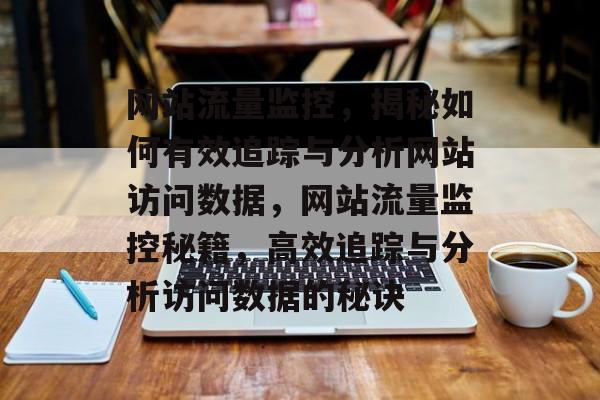 网站流量监控，揭秘如
何有效追踪与分析网站
访问数据，网站流量监
控秘籍，高效追踪与分
析访问数据的秘诀